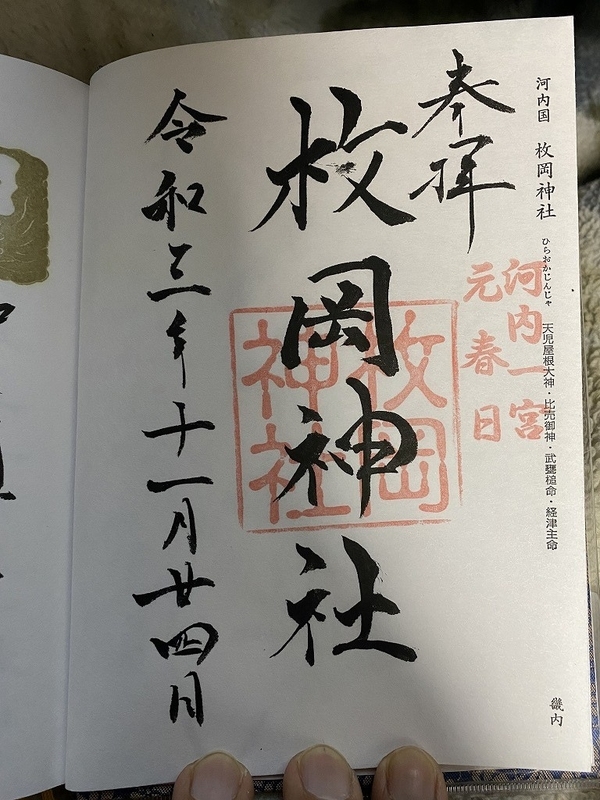 河内国 枚岡神社
ひらおかじんじゃ
天児屋根大神・比売御神・武甕槌命・経津主命
畿内
奉拝
河内一宮
元春日
枚岡神社
枚岡
神社
令和三年十一月廿四日